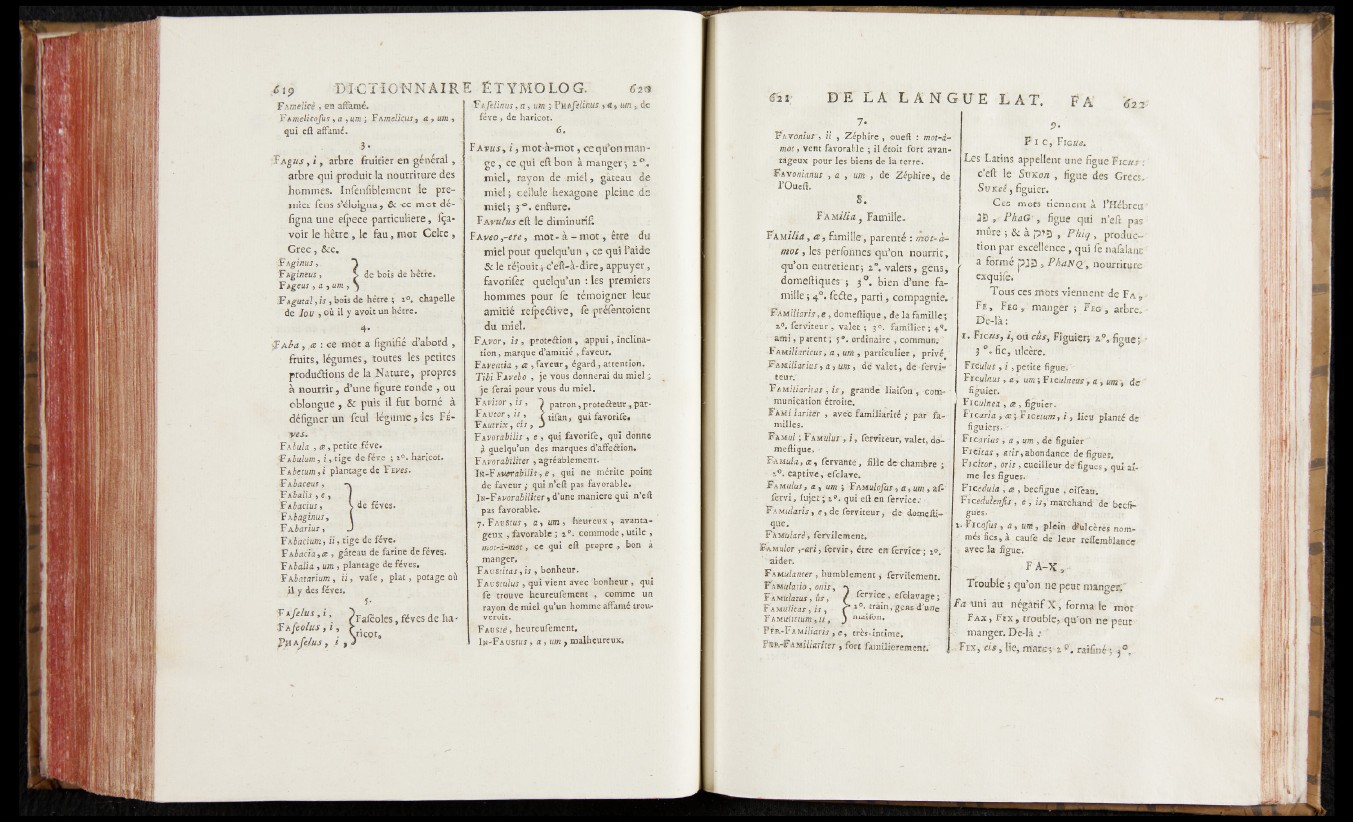 619 DICTIONNAIRE ÉTYMOLOG. 620
FAmelicé, en affamé.
FAmelicosus, a, um; FAmelicus, a, um,
qui est affamé.
3.
FAgus, i, arbre fruitier en général,
arbre qui produit la nourriture des
hommes. Insensiblement le pre-
mier sens s'éloigna, & ce mot dé-
signa une espece particuliere, sça-
voir le hêtre, le fau, mot Celte,
Grec, &c.
FAginus,
FAgineus,
FAgeus, a, um,
de bois de hêtre.
FAgutal, is, bois de hêtre; 2°. chapelle
de Jou, où il y avoit un hêtre.
4.
FAba, æ : ce mot a signifié d'abord,
fruits, légumes, toutes les petites
productions de la Nature, propres
à nourrir, d'une figure ronde, ou
oblongue, & puis il fut borné à
désigner un seul légume, les FÉ-
ves.
FAbula, æ, petite féve.
FAbulum, i, tige de féve; 2°. haricot.
FAbetum, i plantage de FEves.
FAbaceus,
FAbalis, e,
FAbacius,
FAbaginus,
FAbarius,
de féves.
FAbacium, ii, tige de féve.
FAbacia, æ, gâteau de farine de féves.
FAbalia, um, plantage de féves.
FAbatarium, ii, vase, plat, potage où
il y des féves.
5.
FAselus, i,
FAseolus, i,
PHAselus, i,
Faséoles, féves de ha-
ricot.
FAselinus, a, um; PHAselinus, a, um, de
féve, de haricot.
6.
FAvus, i, mot-à-mot, ce qu'on man-
ge, ce qui est bon à manger; 2°.
miel, rayon de miel, gâteau de
miel; cellule hexagone pleine de
miel; 3°. enflure.
FAvulus est le diminutif.
FAveo,-ere, mot-à-mot, être du
miel pour quelqu'un, ce qui l'aide
& le réjouit; c'est-à-dire, appuyer,
favoriser quelqu'un : les premiers
hommes pour se témoigner leur
amitié respective, se présentoient
du miel.
FAvor, is, protection, appui, inclina-
tion, marque d'amitié, faveur.
FAventia, æ, faveur, égard, attention.
Tibi FAvebo, je vous donnerai du miel;
je serai pour vous du miel.
FAvitor, is,
FAutor, is,
FAutrix, cis,
patron, protecteur, par-
tisan, qui favorise.
FAvorabilis, e, qui favorise, qui donne
à quelqu'un des marques d'affection.
FAvorabiliter, agréablement.
IN-FAvorabilis, e, qui ne mérite point
de faveur; qui n'est pas favorable.
IN-FAvorabiliter, d'une maniere qui n'est
pas favorable.
7. FAustus, a, um, heureux, avanta-
geux, favorable; 2°. commode, utile,
mot-à-mot, ce qui est propre, bon à
manger.
FAustitas, is, bonheur.
FAustulus, qui vient avec bonheur, qui
se trouve heureusement, comme un
rayon de miel qu'un homme affamé trou-
veroit.
FAusté, heureusement.
IN-FAustus, a, um, malheureux.
621 DE LA LANGUE LAT. FA 622
7.
FAvonius, ii, Zéphire, ouest : mot-à-
mot, vent favorable; il étoit fort avan-
tageux pour les biens de la terre.
FAvonianus, a, um, de Zéphire, de
l'Ouest.
8.
FAMilia, Famille.
FAMilia, æ, famille, parenté : mot-à-
mot, les personnes qu'on nourrit,
qu'on entretient; 2°. valets, gens,
domestiques; 3°. bien d'une fa-
mille; 4°. secte, parti, compagnie.
FAMiliaris, e, domestique, de la famille;
2°. serviteur, valet; 3°. familier; 4°.
ami, parent; 5°. ordinaire, commun.
FAMiliaricus, a, um, particulier, privé.
FAMiliarius, a, um, de valet, de servi-
teur.
FAMiliaritas, is, grande liaison, com-
munication étroite.
FAMiliariter, avec familiarité; par fa-
milles.
FAMul; FAMulus, i, serviteur, valet, do-
mestique.
FAMula, æ, servante, fille de chambre;
2°. captive, esclave.
FAMulus, a, um; FAMulosus, a, um, as-
servi, sujet; 2°. qui est en service.
FAMularis, e, de serviteur, de domesti-
que.
FAMularé, servilement.
FAMulor,-ari, servir, être en service; 2°.
aider.
FAMulanter, humblement, servilement.
FAMulatio, onis,
FAMulatus, ûs,
FAMulitas, is,
FAMulitium, ii,
service, esclavage;
2°. train, gens d'une
maison.
PER-FAMiliaris, e, très-intime.
PER-FAMiliariter, fort familierement.
9.
FIC, FIGue.
Les Latins appellent une figue FIcus :
c'est le SuKon, figue des Grecs.
SuKeé, figuier.
Ces mots tiennent à l'Hébreu
פג, PhaG, figue qui n'est pas
mûre; & à פיק, Phiq, produc-
tion par excellence, qui se nasalant
a formé פנק, PhaNQ, nourriture
exquise.
Tous ces mots viennent de FA,
FE, FEG, manger; FEG, arbre.
De-là :
1. FIcus, i, ou cûs, Figuier; 2°. figue;
3°. fic, ulcère.
FIculus, i, petite figue.
FIculnus, a, um; FIculneus, a, um, de
figuier.
FIculnea, æ, figuier.
FIcaria, æ; FIcetum, i, lieu planté de
figuiers.
FIcarius, a, um, de figuier
FIcitas, atis, abondance de figues.
FIcitor, oris, cueilleur de figues, qui ai-
me les figues.
FIcedula, æ, becfigue, oiseau.
FIcedulensis, e, is, marchand de becfi-
gues.
2. FIcosus, a, um, plein d'ulcères nom-
més fics, à cause de leur ressemblance
avec la figue.
FA-X,
Trouble; qu'on ne peut manger.
Fa uni au négatif X, forma le mot
FAX, FEX, trouble, qu'on ne peut
manger. De-là :
FEX, cis, lie, marcs; 2°. raisiné; 3°.